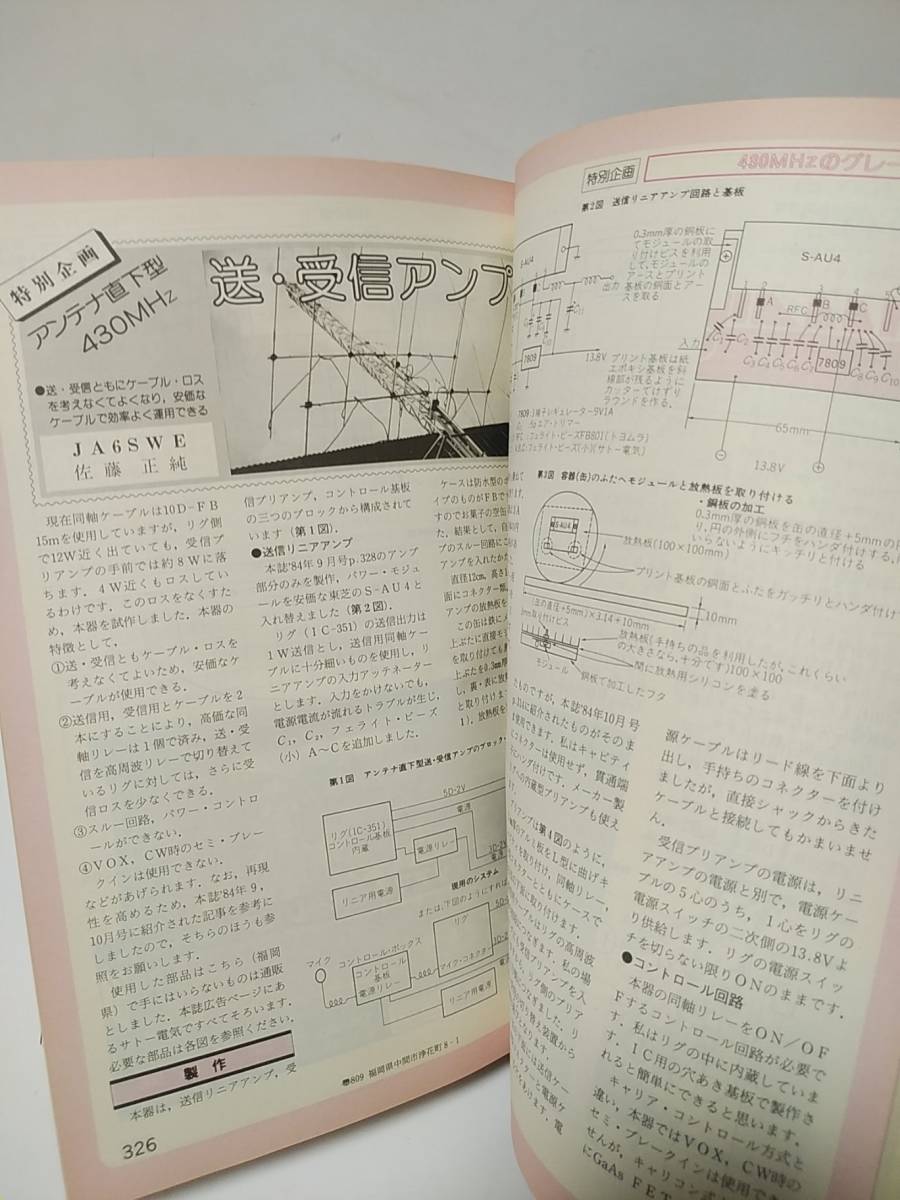 特別企画
アンテナ直下型
430MHz
送・受信アンプ
●送・受信ともにケーブル・ロス
を考えなくてよくなり，安価な
ケーブルで効率よく運用できる
JA6SWE
佐藤 正純
現在同軸ケーブルは10D-FB
15mを使用していますが，リグ側
で12W近く出ていても，受信プ
リアンプの手前では約8Wに落
ちます．4W近くもロスしてい
るわけです．このロスをなくすた
め，本器を試作しました．本器の
特徴として，
①送・受信ともケーブル・ロスを
考えなくてよいため，安価なケ
ーブルが使用できる．
②送信用，受信用とケーブルを2
本にすることにより，高価な同
軸リレーは1個で済み，送・受
信を高周波リレーで切り替えて
いるリグに対しては，さらに受
信ロスを少なくできる．
③スルー回路，パワー・コントロ
ールができない．
④VOX，CW時のセミ・ブレー
クインは使用できない．
などがあげられます．なお，再現
性を高めるため，本誌'84年9，
10月号に紹介された記事を参考に
しましたので，そちらのほうも参
照をお願いします．
使用した部品はこちら（福岡
県）で手にはいらないものは通販
としました．本誌広告ページにあ
るサトー電気ですべてそろいます．
必要な部品は各図を参照ください．
製作
本器は，送信リニアアンプ，受
信プリアンプ，コントロール基板
の三つのブロックから構成されて
います（第1図）．
●送信リニアアンプ
本誌'84年9月号p.328のアンプ
部分のみを製作，パワー・モジュ
ールを安価な東芝のS-AU4と
入れ替えました（第2図）．
リグ（IC-351）の送信出力は
1W送信とし，送信用同軸ケーブ
ルに十分細いものを使用し，リ
ニアアンプの入力アッテネーター
とします．入力をかけないでも，
電源電流が流れるトラブルが生じ，
C₁，C₂，フェライト・ビーズ
（小）A〜Cを追加しました．
第1図 アンテナ直下型送・受信アンプのブロック
5D-2V
電源
リグ(IC-351)
コントロール基板
内蔵
電源リレー
電源
リニア用電源
現用のシステム
または，下図のようにすれば，
リグ
コントロール・ボックス
マイク
コントロール
基板
電源リレー
マイク・コネクター
電源
リニア用電源
〠809 福岡県中間市浄花町8-1
326
ケースは防水型の
イプのものがFBで
すのでお菓子の空缶
た．結果として，自
プのスルー回路に
直径12cm，高さ
面にコネクター類，
アンプの放熱板を
この缶は鉄に
上ぶたに直接モ
を取り付けても
上ぶたを0.3mm
し，裏・表に放
と取り付けます
1)．放熱板を
特別企画
430MHzのグレー
第2図 送信リニアアンプ回路と基板
S-AU4
出力
7809
13.8V
0.3mm厚の銅板に
てモジュールの取
り付けビスを利用
して，モジュールの
アースとプリント
基板の銅面とアー
スを取る
S-AU4
A
B
C
RFC
入力
C₁
C₂
C₃ C₄ C₅ C₆ C₇
7809
C₈ C₉ C₁₀
65mm
13.8V
プリント基板は紙
エポキシ基板を斜
線部が残るように
カッターでけずり
ラウンドを作る．
7809：3端子レギュレーター9V1A
エア・トリマー
フェライト・ビーズFB801(トヨムラ)
フェライト・ビーズ(小)(サトー電気)
第3図 容器(缶)のふたへモジュールと放熱板を取り付ける
・銅板の加工
0.3mm厚の銅板を缶の直径+5mmの
り，円の外側にフチをハンダ付けする．
いらないようにキッチリと付ける
S-AU4
放熱板(100×100mm)
プリント基板の銅面とふたをガッチリとハンダ付け
(缶の直径+5mm)×3.14+10mm
10mm
取り付けビス
放熱板(手持ちの品を利用したが，これくらい
の大きさなら，十分です)100×100
間に放熱用シリコンを塗る
モジュール
銅板で加工したフタ
ものですが，本誌'84年10月号
に紹介されたものがそのま
使用できます．私はキャビティ
コネクターは使用せず，貫通端
ハンダ付けです．メーカー製
の内蔵型プリアンプも使え
プリアンプは第4図のように，
アルミ板をL型に曲げキ
を取り付け，同軸リレー，
源ケーブルはリード線を下面より
出し，手持ちのコネクターを付け
ましたが，直接シャックからきた
ケーブルと接続してもかまいませ
ん．
受信プリアンプの電源は，リニ
アアンプの電源と別で，電源ケー
ブルの5心のうち，1心をリグの
電源スイッチの二次側の13.8Vよ
り供給します．リグの電源スイッ
チを切らない限りONのままです．
●コントロール回路
本器の同軸リレーをON／OF
Fするコントロール回路が必要で
す．私はリグの中に内蔵していま
す．IC用の穴あき基板で製作さ
れると簡単にできると思います．
キャリア・コントロール方式と
違い，本器ではVOX，CW時の
セミ・ブレークインは使用できま
せんが，キャリコン式
にGaAs FET